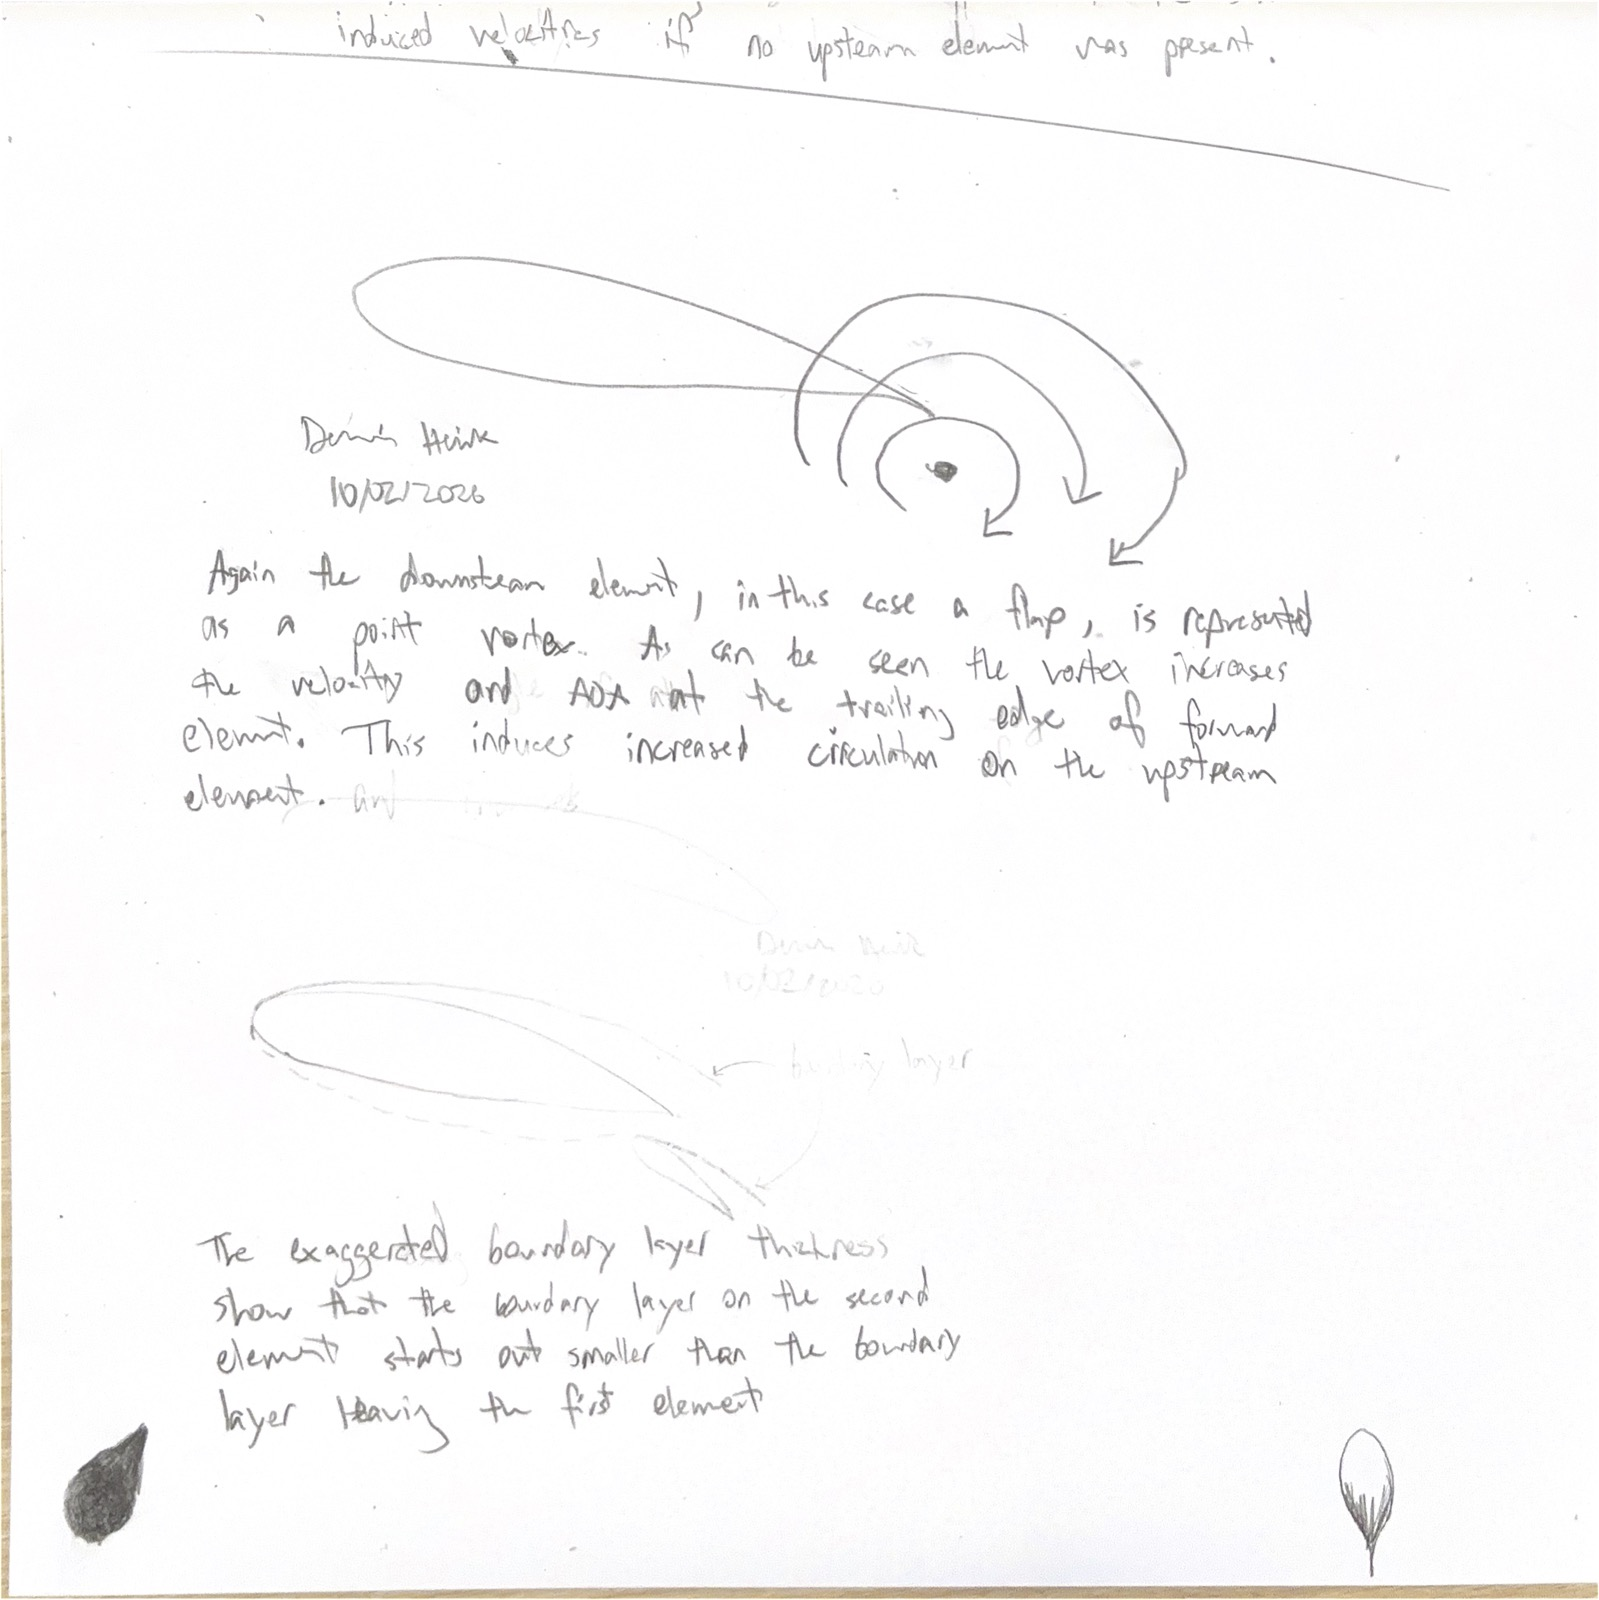 induced velocities if no upstream element was present.
10/02/2020
Again the downsteam element, in this case a flap, is represented
as a point vortex. As can be seen the vortex increases
the velocity and AOA at the trailing edge of forward
element. This induces increased circulation on the upstream
element. and
10/02/2020
boundary layer
The exaggerated boundary layer thickness
show that the boundary layer on the second
element starts out smaller than the boundary
layer leaving the first element